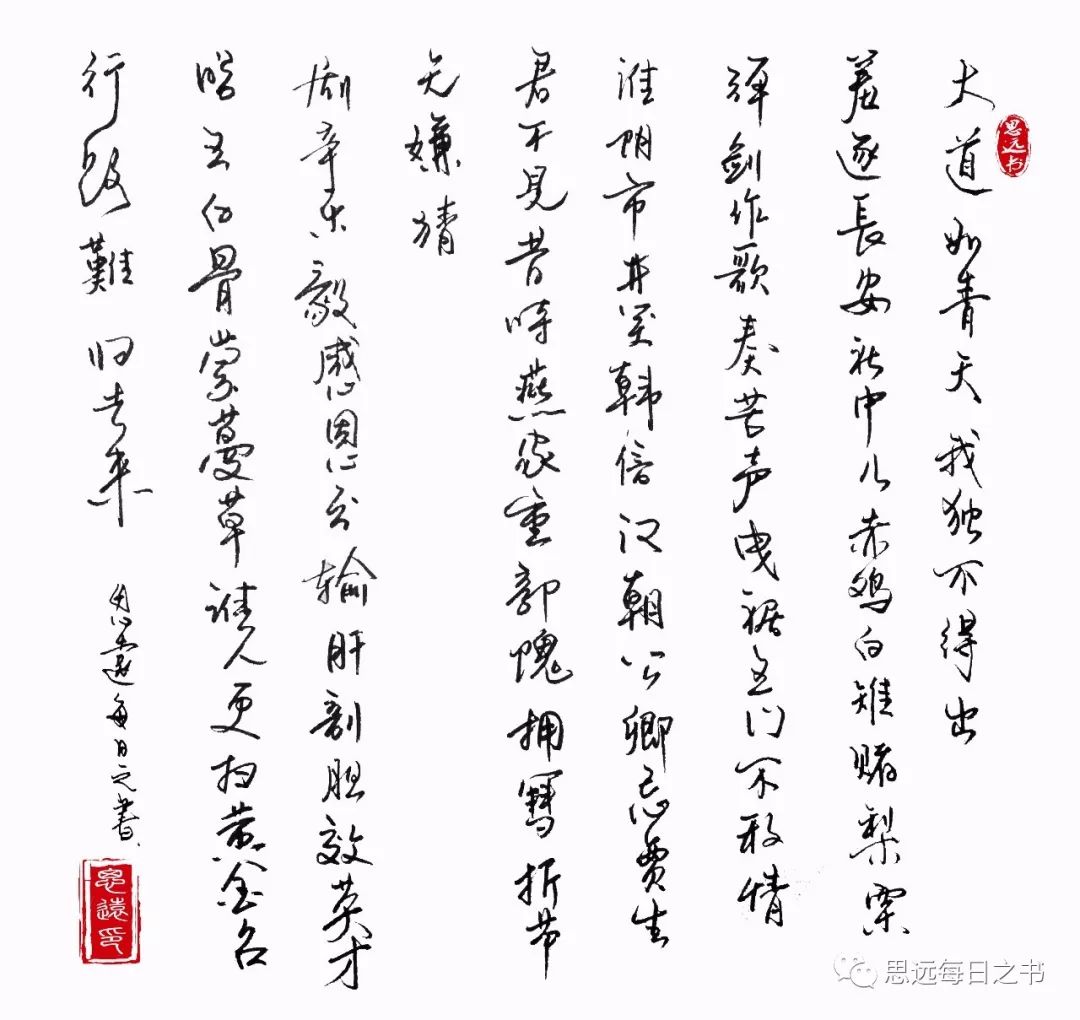 思远书
大道如青天我独不得出
羞逐長安社中儿赤鸡白雉赌梨栗
弹剑作歌奏苦声曳裾王门不称情
淮阴市井笑韩信汉朝公卿忌贾生
君不見昔時燕家重郭隗拥篲折节
无嫌猜
剧辛乐毅感恩分输肝剖胆效英才
昭王白骨蒙蔓草谁人更扫黄金台
行路難 归去来
思遠每日之書
思遠印
思远每日之书